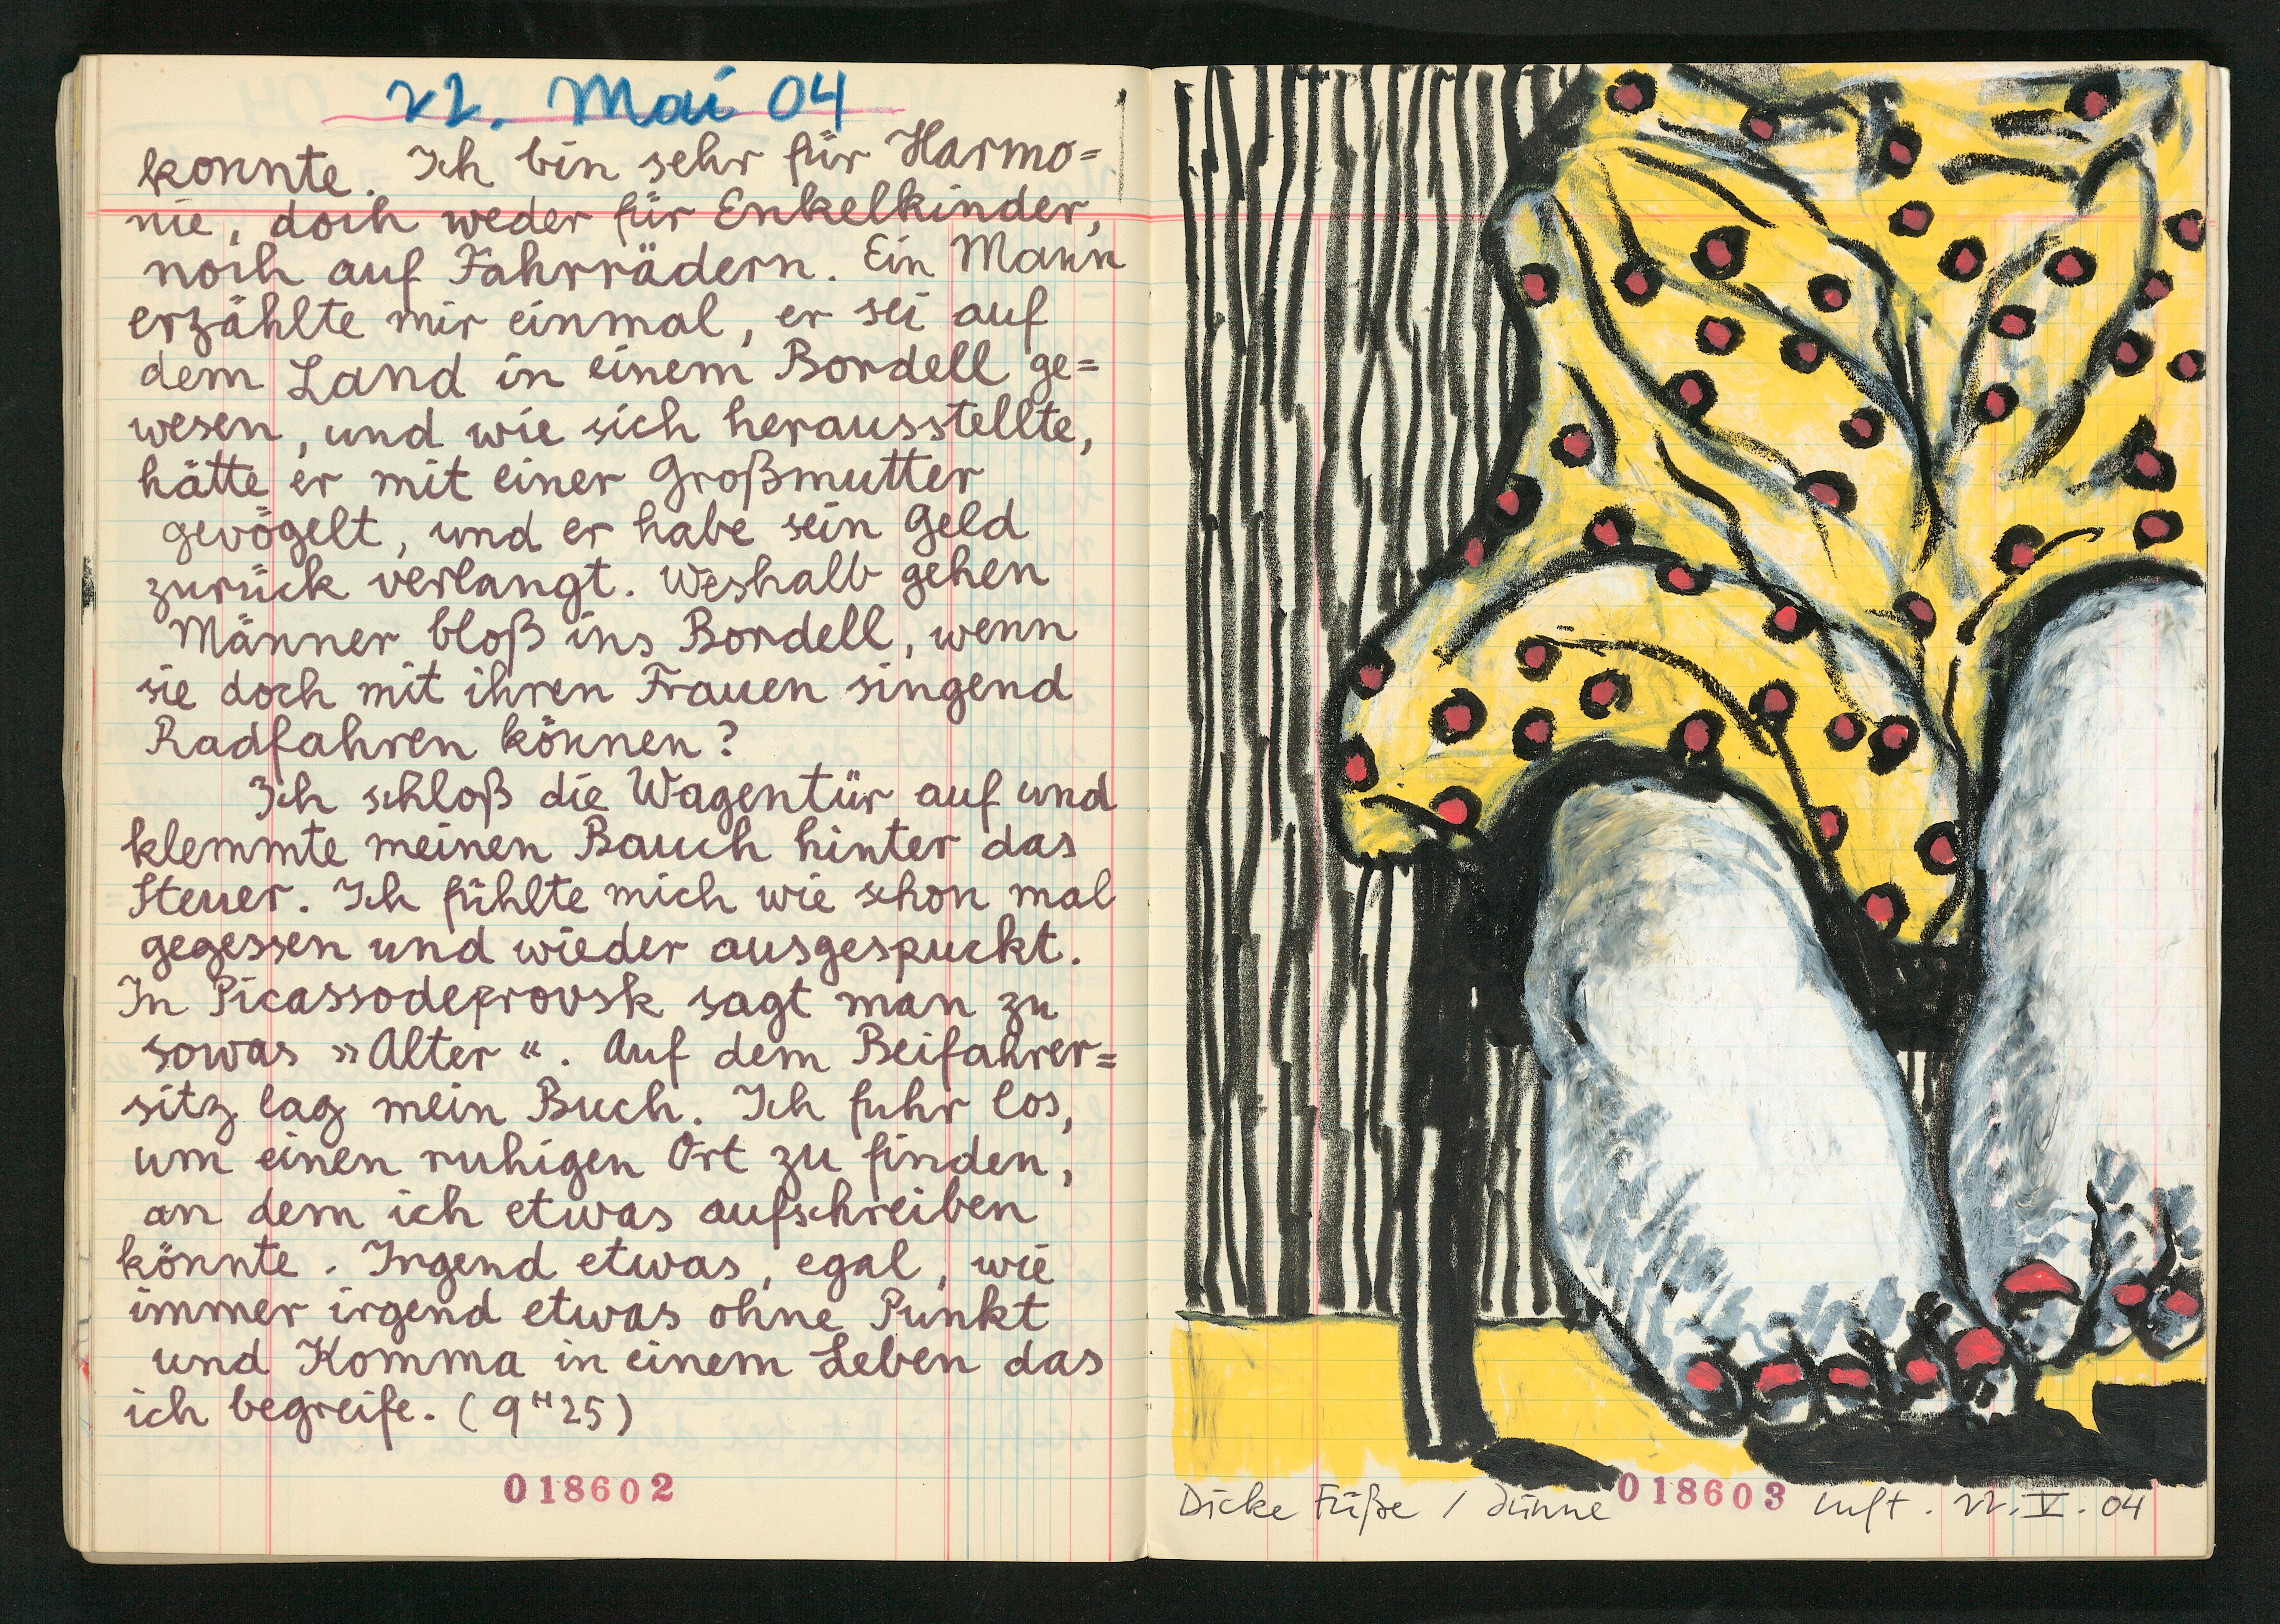 22. Mai 04
konnte. Ich bin sehr für Harmo=
nie, doch weder für Enkelkinder,
noch auf Fahrrädern. Ein Mann
erzählte mir einmal, er sei auf
dem Land in einem Bordell ge=
wesen, und wie sich herausstellte,
hätte er mit einer Großmutter
gevögelt, und er habe sein Geld
zurück verlangt. Weshalb gehen
Männer bloß ins Bordell, wenn
sie doch mit ihren Frauen singend
Radfahren können?
Ich schloß die Wagentür auf und
klemmte meinen Bauch hinter das
Steuer. Ich fühlte mich wie schon mal
gegessen und wieder ausgespuckt.
In Picassodeprovsk sagt man zu
sowas »Alter«. Auf dem Beifahrer=
sitz lag mein Buch. Ich fuhr los,
um einen ruhigen Ort zu finden,
an dem ich etwas aufschreiben
könnte. Irgend etwas, egal, wie
immer irgend etwas ohne Punkt
und Komma in einem Leben das
ich begreife. (9ᴴ25)
018602
Dicke Füße / dünne Luft. 22. V. 04
018603